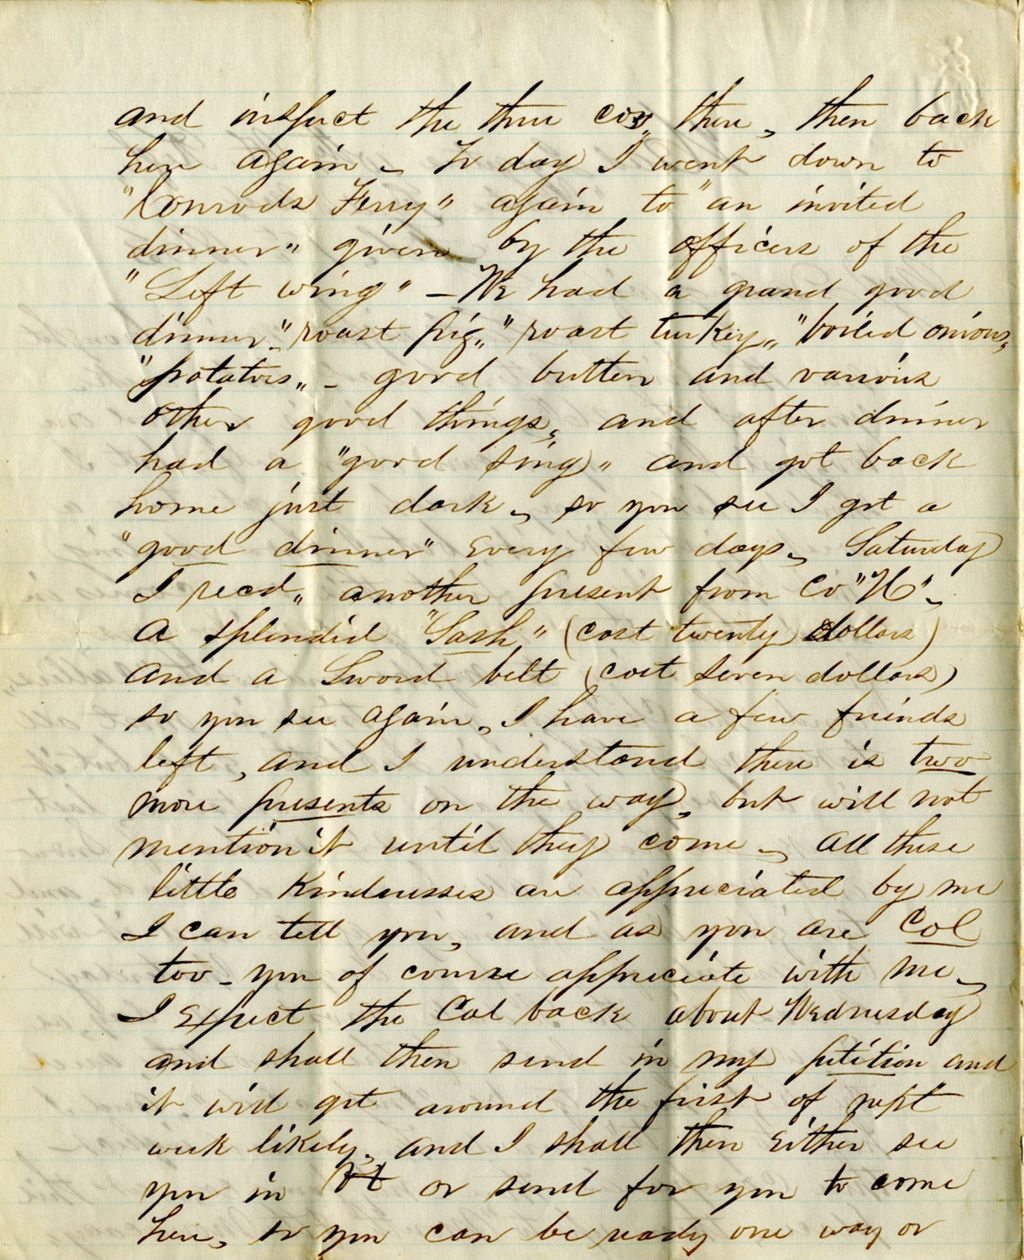 and inspect the three cos, there, then back
here again, To day I went down to
"Conrods Ferry" again to "an invited
dinner" given by the officers of the
"Left wing" - We had a grand good
dinner, "roast pig," "roast turkey," "boiled onions,"
"potatoes," - good butter and various
other good things, and after dinner
had a "good sing," and got back
home just dark, so you see I get a
"good dinner" every few days, Saturday
I recd, another present from Co "H",
a splendid "Sash" (cost twenty dollars)
and a Sword belt (cost seven dollars)
so you see again, I have a few friends
left, and I understand there is two
more presents on the way, but will not
mention it until they come, all these
little kindnesses are appreciated by me
I can tell you, and as you are Col
too - you of course appreciate with me,
I expect the Col back about Wednesday
and shall then send in my petition and
it will get around the first of next
week likely, and I shall then either see
you in Vt or send for you to come
here, so you can be ready one way or